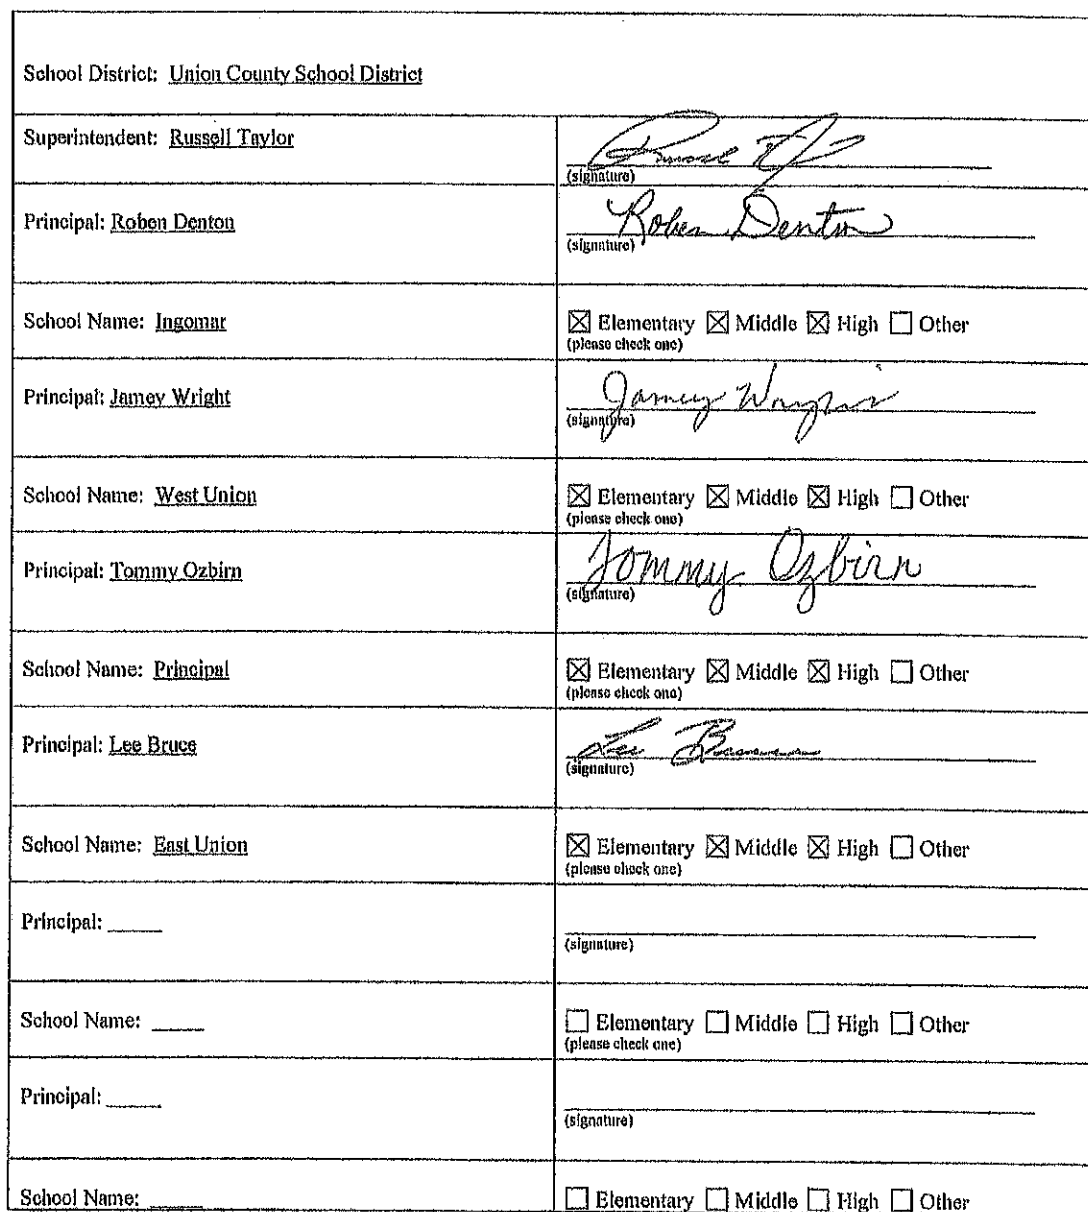 School District: Union County School District
Superintendent: Russell Taylor
(signature)
Principal: Roben Denton
Roben Denton
(signature)
School Name: Ingomar
☒ Elementary ☒ Middle ☒ High ☐ Other
(please check one)
Principal: Jamey Wright
Jamey Wright
(signature)
School Name: West Union
☒ Elementary ☒ Middle ☒ High ☐ Other
(please check one)
Principal: Tommy Ozbirn
Tommy Ozbirn
(signature)
School Name: Principal
☒ Elementary ☒ Middle ☒ High ☐ Other
(please check one)
Principal: Lee Bruce
Lee Bruce
(signature)
School Name: East Union
☒ Elementary ☒ Middle ☒ High ☐ Other
(please check one)
Principal: _____
(signature)
School Name: _____
☐ Elementary ☐ Middle ☐ High ☐ Other
(please check one)
Principal: _____
(signature)
School Name: _____
☐ Elementary ☐ Middle ☐ High ☐ Other